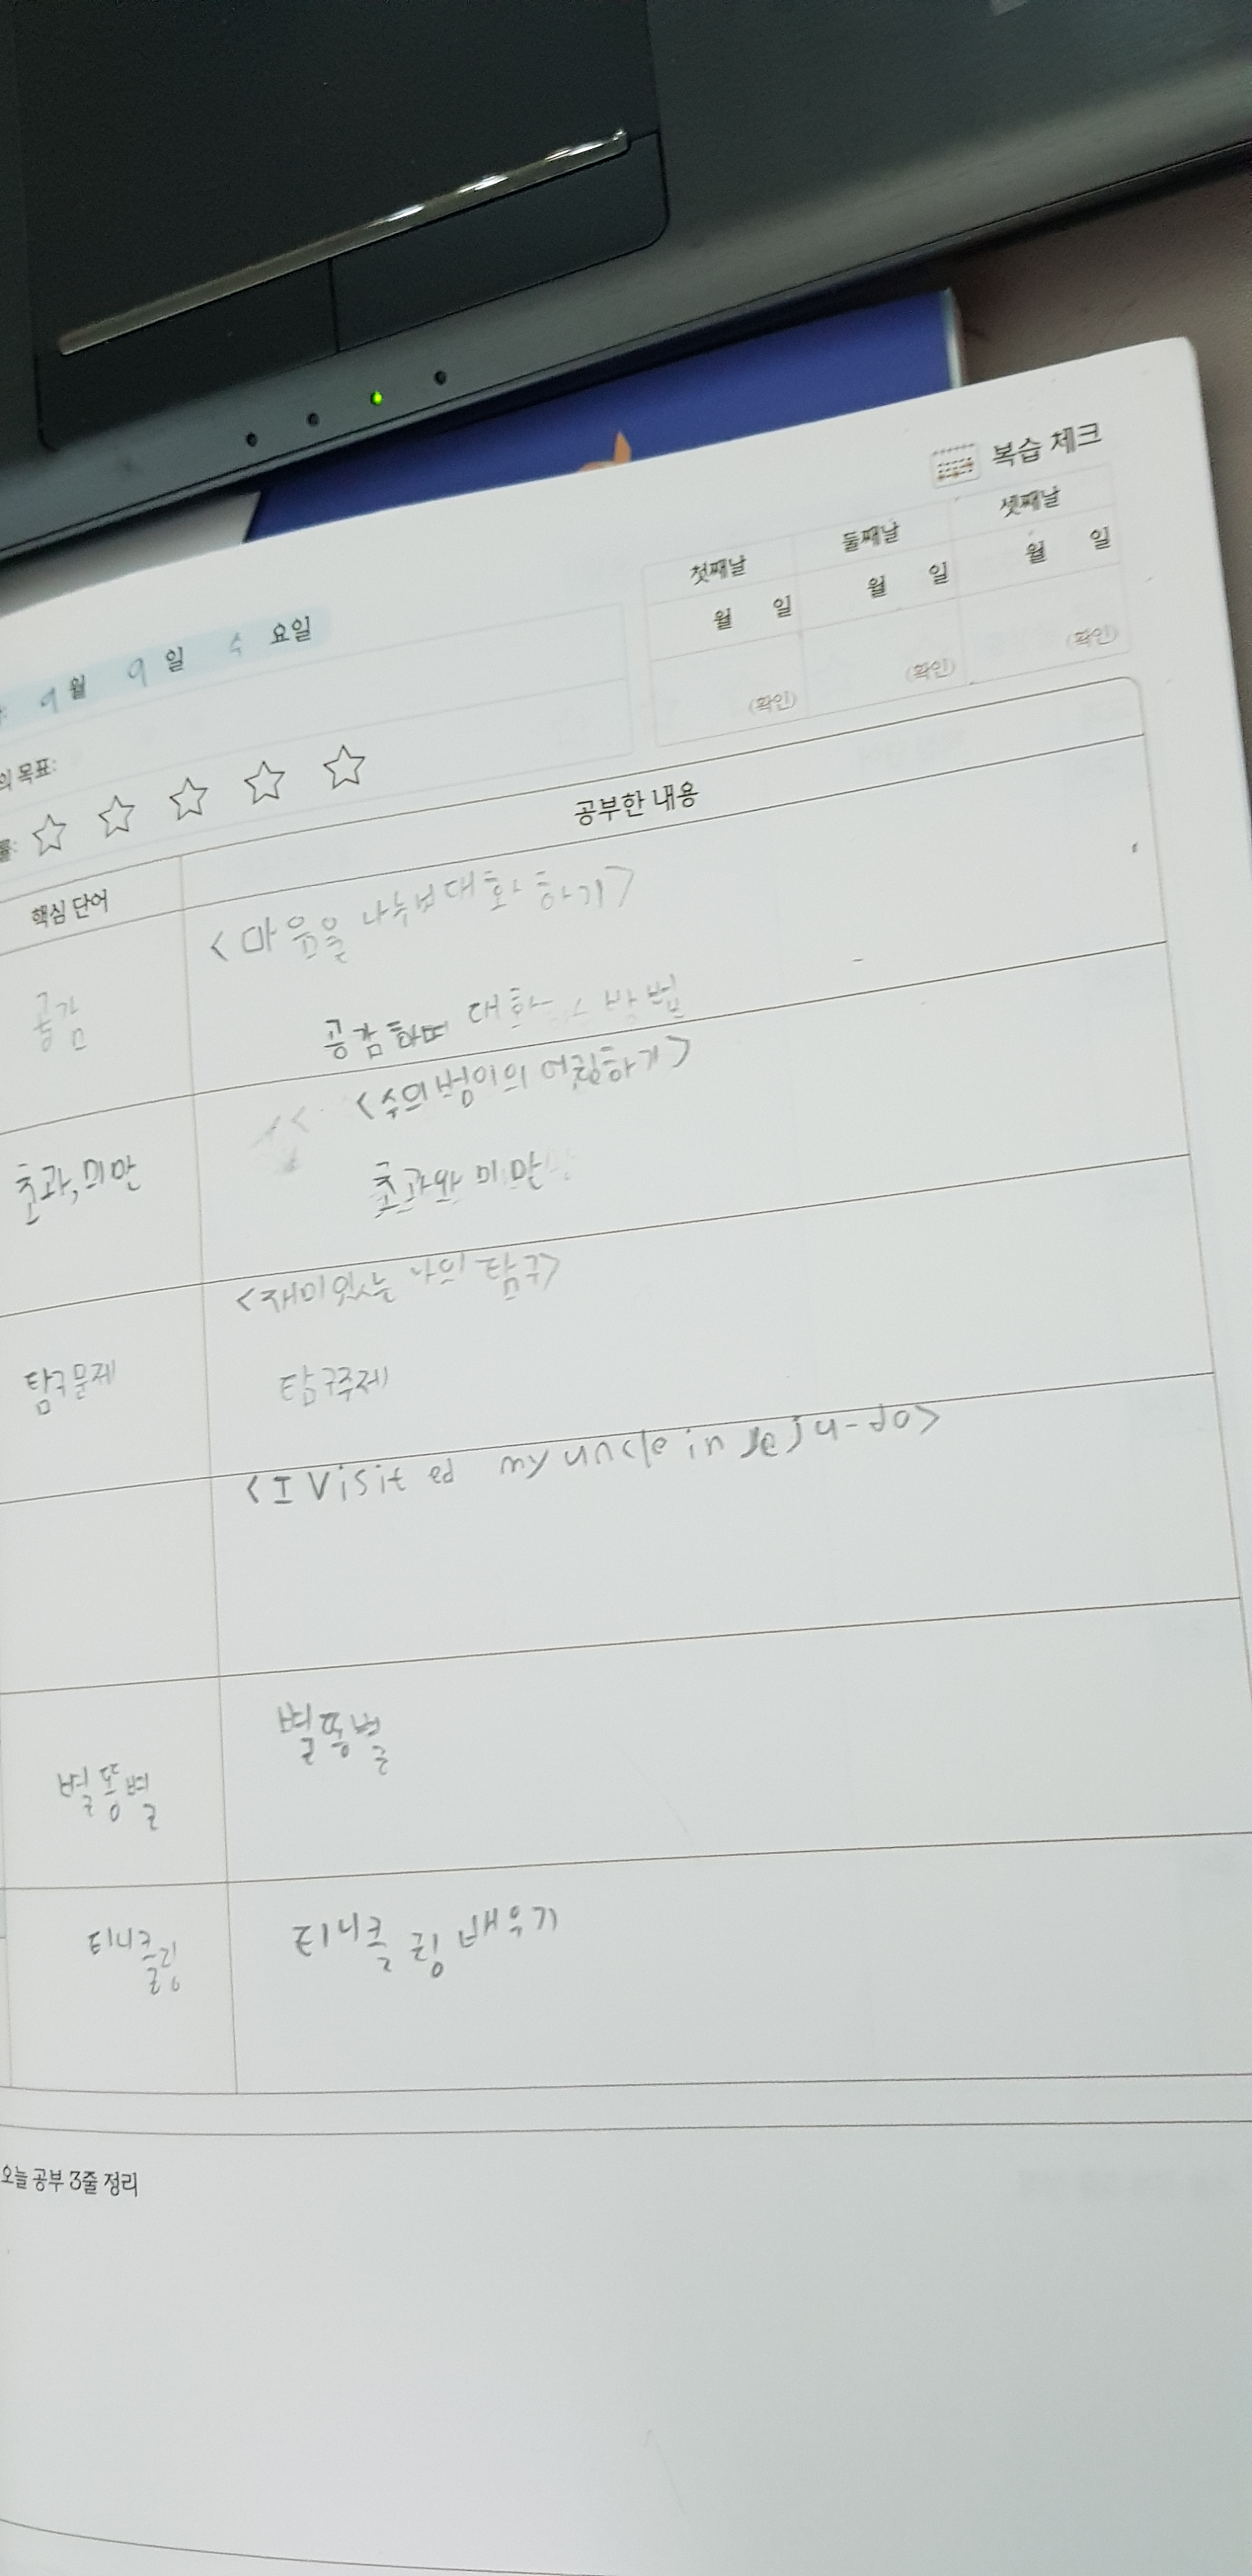 복습 체크
첫째날 둘째날 셋째날
월 일 월 일 월 일
(확인) (확인) (확인)
9월 9일 수 요일
의 목표:
률:
핵심 단어 공부한 내용
공감 <마음을 나누며 대화하기>
공감하며 대화 방법
<수의 범위의 어림하기>
초과, 미만 초과와 미만
<재미있는 나의 탐구>
탐구문제 탐구주제
<I visited my uncle in Jeju-do>
별똥별 별똥별
티니클링 티니클링 배우기
오늘 공부 3줄 정리